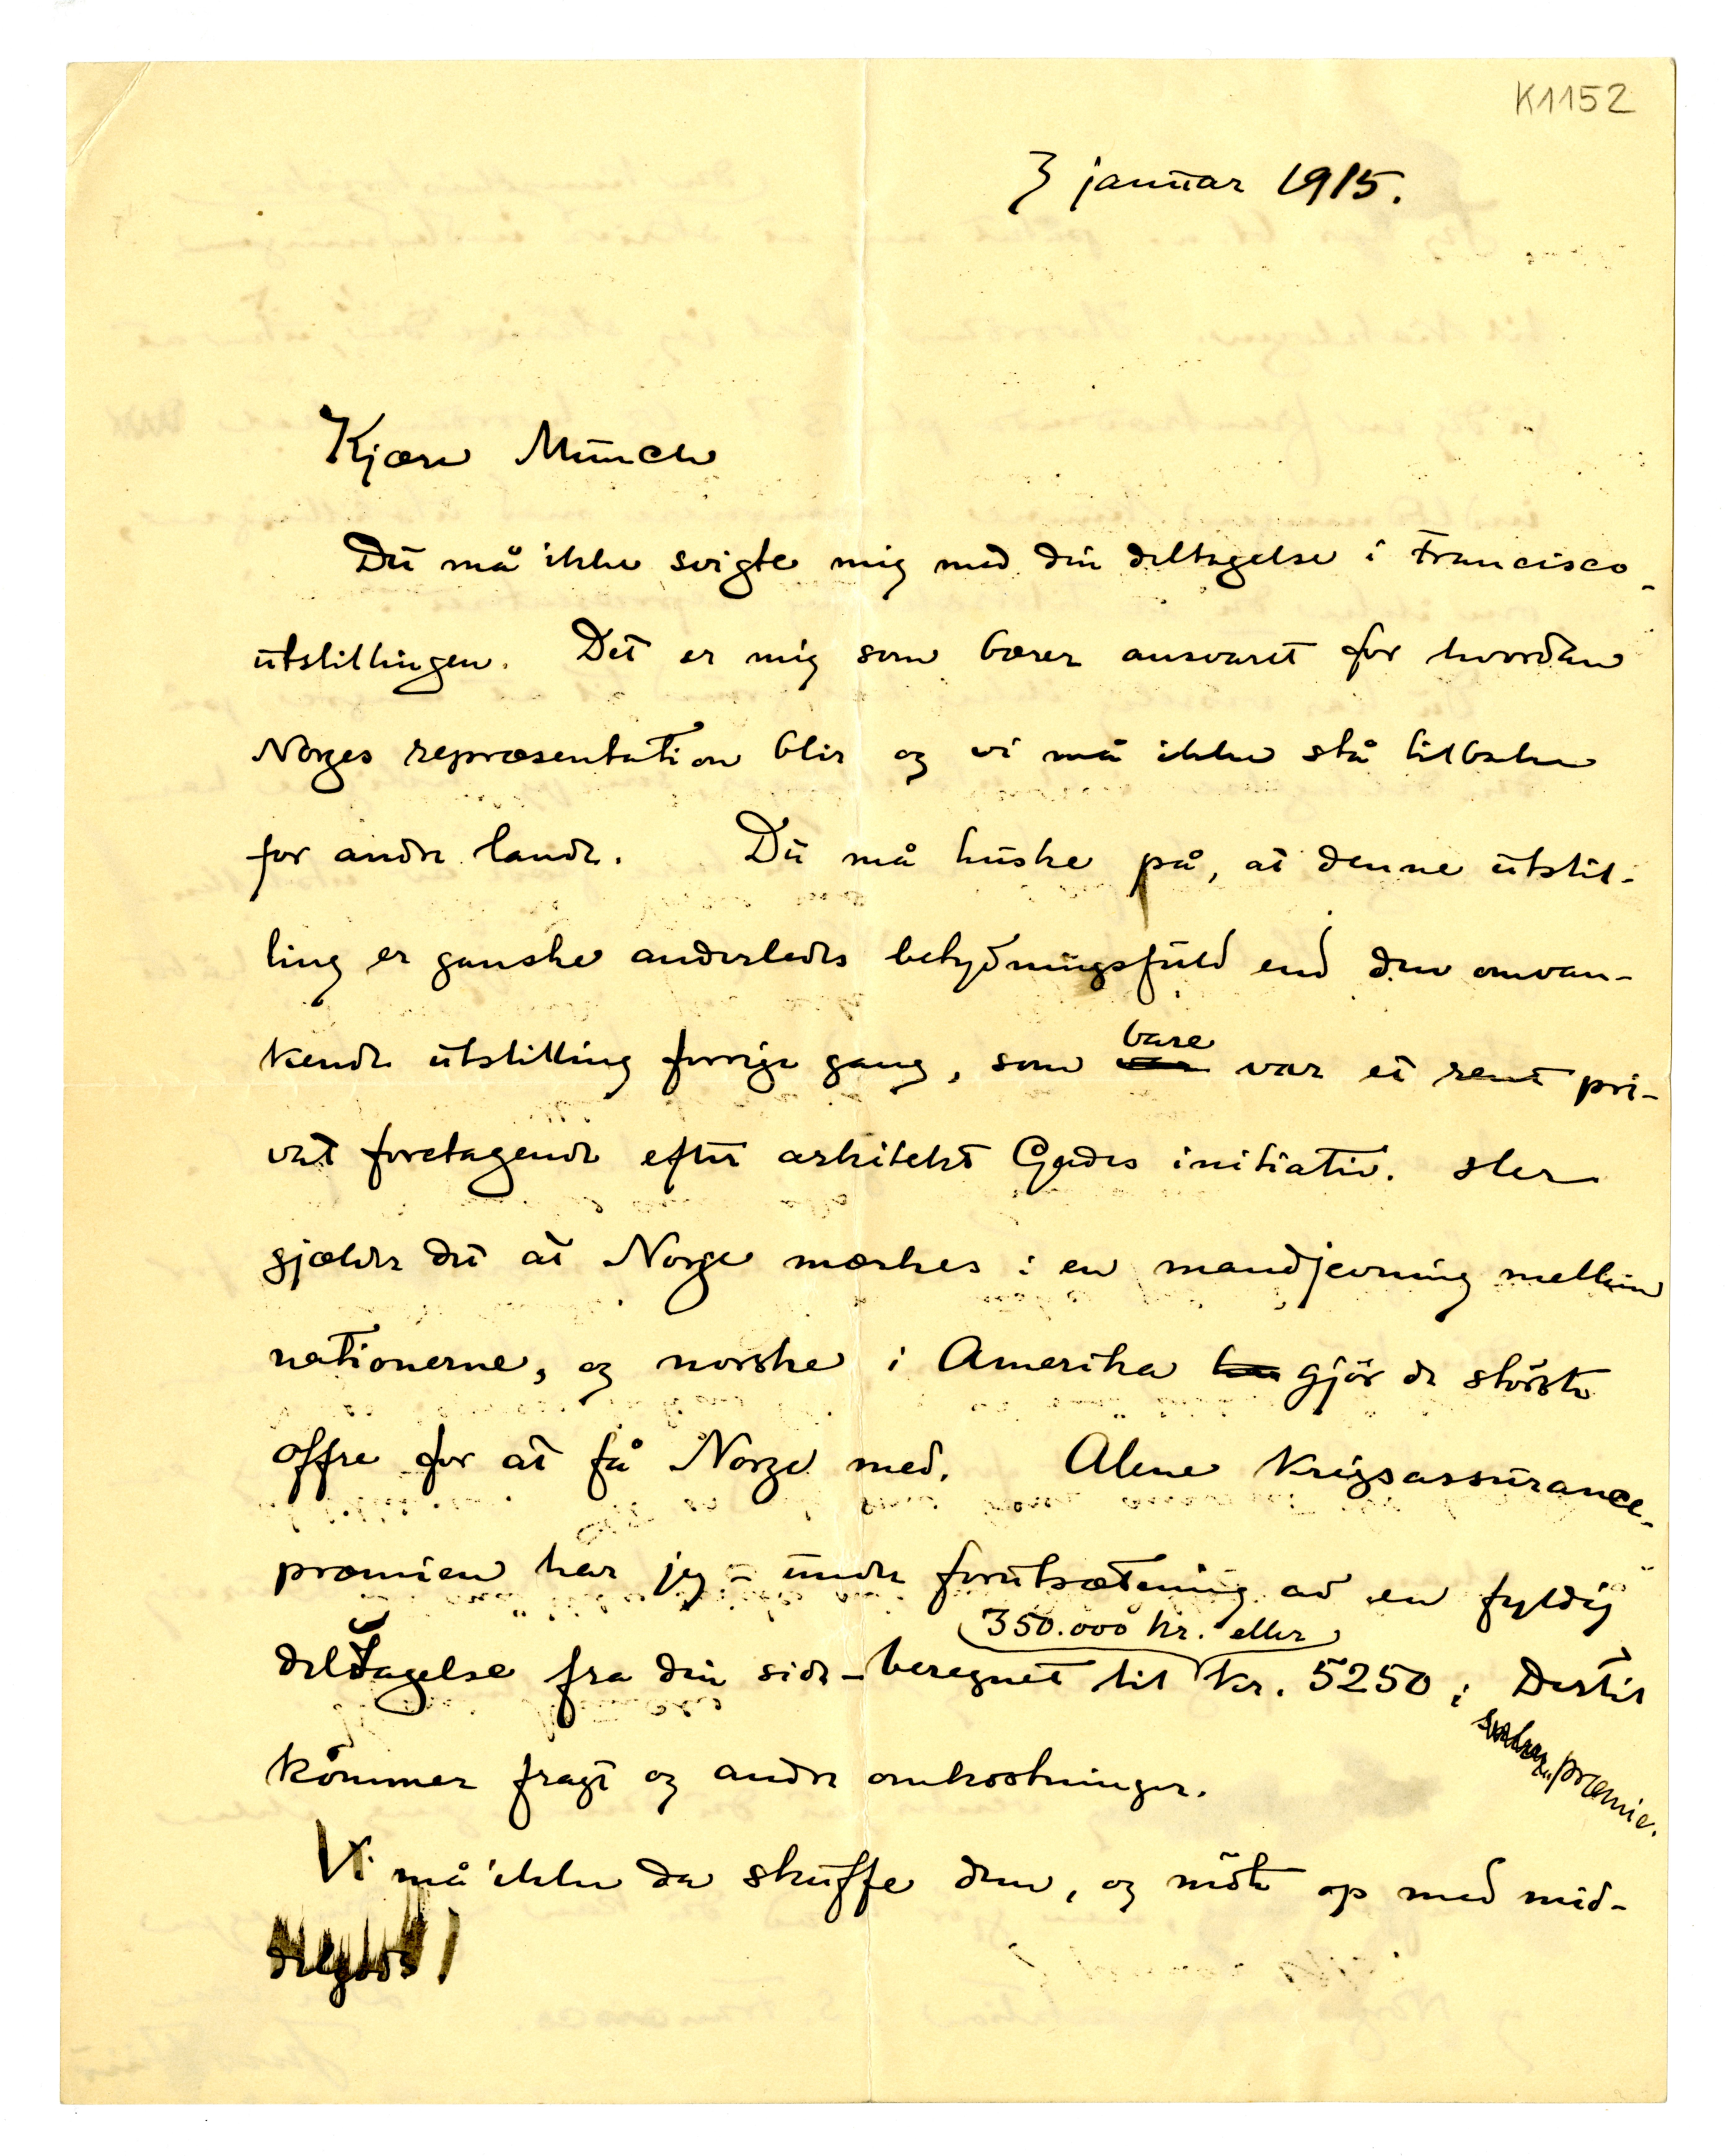 K1152
3 januar 1915.
Kjære Munch
Du må ikke svigte mig med din deltagelse i Francisco-
utstillingen. Det er mig som bærer ansvaret for hvordan
Norges repræsentation blir og vi må ikke stå tilbake
for andre lande. Du må huske på, at denne utstil-
ling er ganske anderledes betydningsfuld end den omvan-
kende utstilling forrige gang, som bare var et rent pri-
vat foretagende efter arkitekt Gades initiativ. Her
gjælder det at Norge mærkes i en mandjevning mellem
nationerne, og norske i Amerika gjör de störste
offre for at få Norge med. Alene krigsassurance-
præmien har jeg – under forutsætning av en fyldig
350.000 kr. eller
deltagelse fra din side – beregnet til kr. 5250 i
præmie.
Dertil
kommer fragt og andre omkostninger.
Vi må ikke da skuffe dem, og möte op med mid-
delgods!